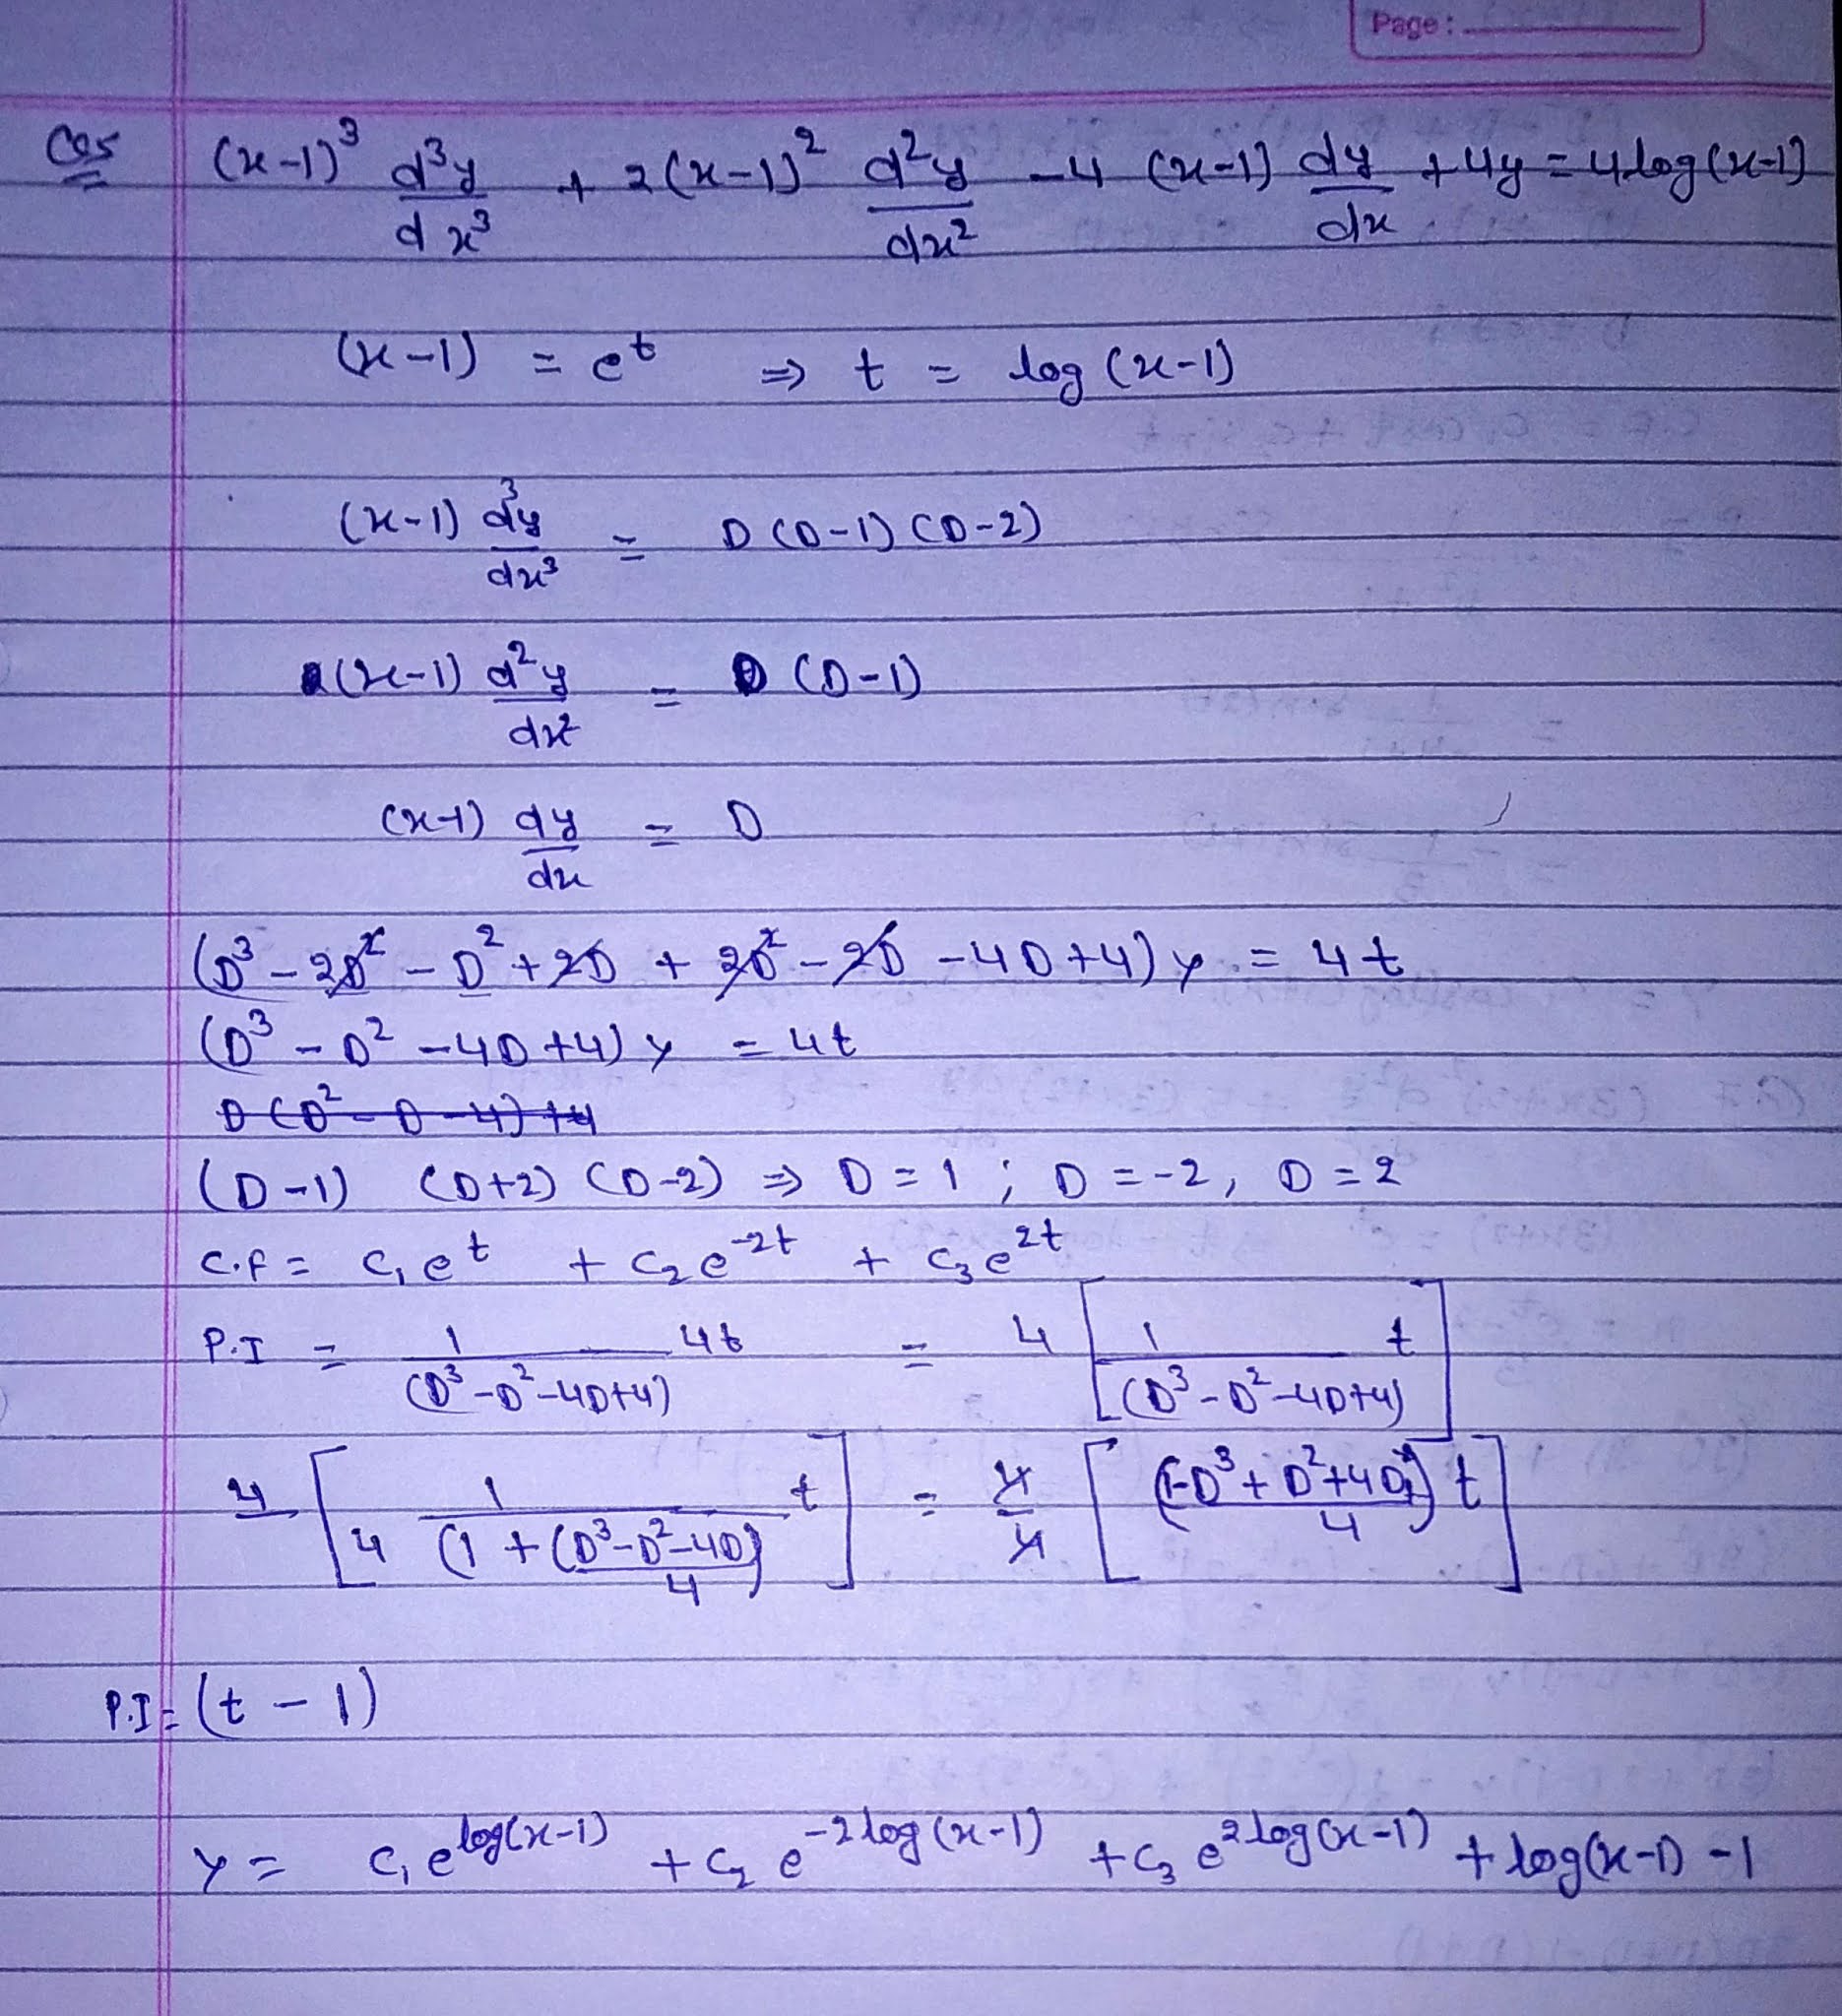 Page:
Q5 (x-1)³ d³y/dx³ + 2(x-1)² d²y/dx² - 4 (x-1) dy/dx + 4y = 4 log(x-1)
(x-1) = e^t ⇒ t = log (x-1)
(x-1) d³y/dx³ = D (D-1) (D-2)
(x-1) d²y/dx² = D (D-1)
(x-1) dy/dx = D
(D³ - 2D² - D² + 2D + 2D² - 2D - 4D + 4) y = 4t
(D³ - D² - 4D + 4) y = 4t
D (D² - D - 4) + 4
(D-1) (D+2) (D-2) ⇒ D = 1 ; D = -2, D = 2
C.F = C₁e^t + C₂e^-2t + C₃e^2t
P.I = 1/(D³-D²-4D+4) 4t = 4 [1/(D³-D²-4D+4) t]
4 [1/4 (1 + (D³-D²-4D)/4) t] = 4/4 [(-D³+D²+4D)/4 t]
P.I = (t - 1)
y = C₁e^log(x-1) + C₂ e^-2log(x-1) + C₃ e^2log(x-1) + log(x-1) - 1